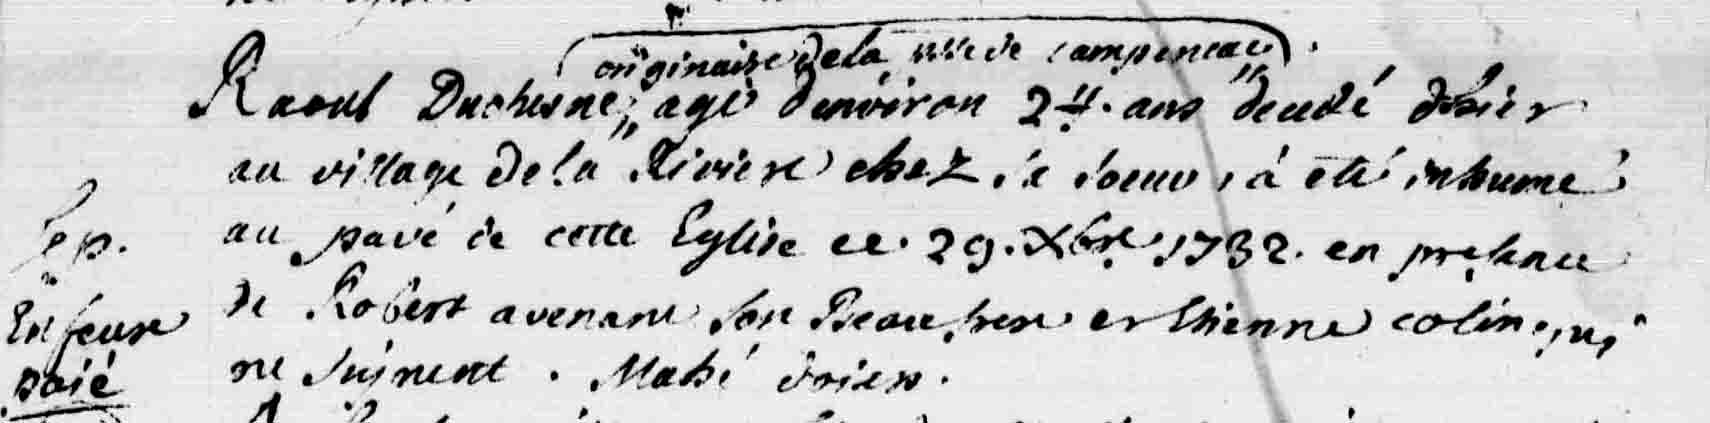 originaire de la ville de campeneac
Raoul Duchesne, agé d'environ 24. ans decedé d'hier
au village de la Riviere chez sa soeur, a eté inhumé
Sep.
au pavé de cette Eglise ce. 29. Xbre 1732. en presence
Enfeux
de Robert avenant son Beau frere et Etienne colin. qui
paié
ne signent. Mahé